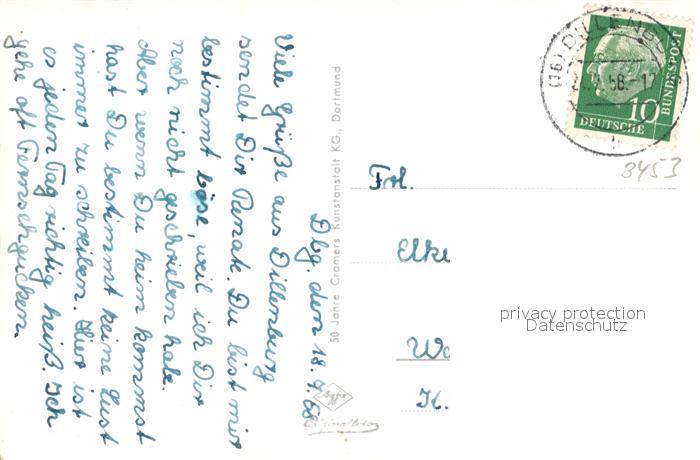 Dbg. den 18.7.58
Viele Grüße aus Dillenburg
sendet Dir Renate. Du bist mir
bestimmt böse, weil ich Dir
noch nicht geschrieben habe.
Aber wenn Du heim kommst
hast Du bestimmt keine Lust
immer zu schreiben. Hier ist
es jeden Tag richtig heiß. Ich
gehe oft Fernsehgucken.
50 Jahre Cramers Kunstanstalt KG., Dortmund
Agfa
Frl.
Elke
We
K.
(16) DILLENB
58.-17
10
DEUTSCHE
BUNDESPOST
8453
privacy protection
Datenschutz